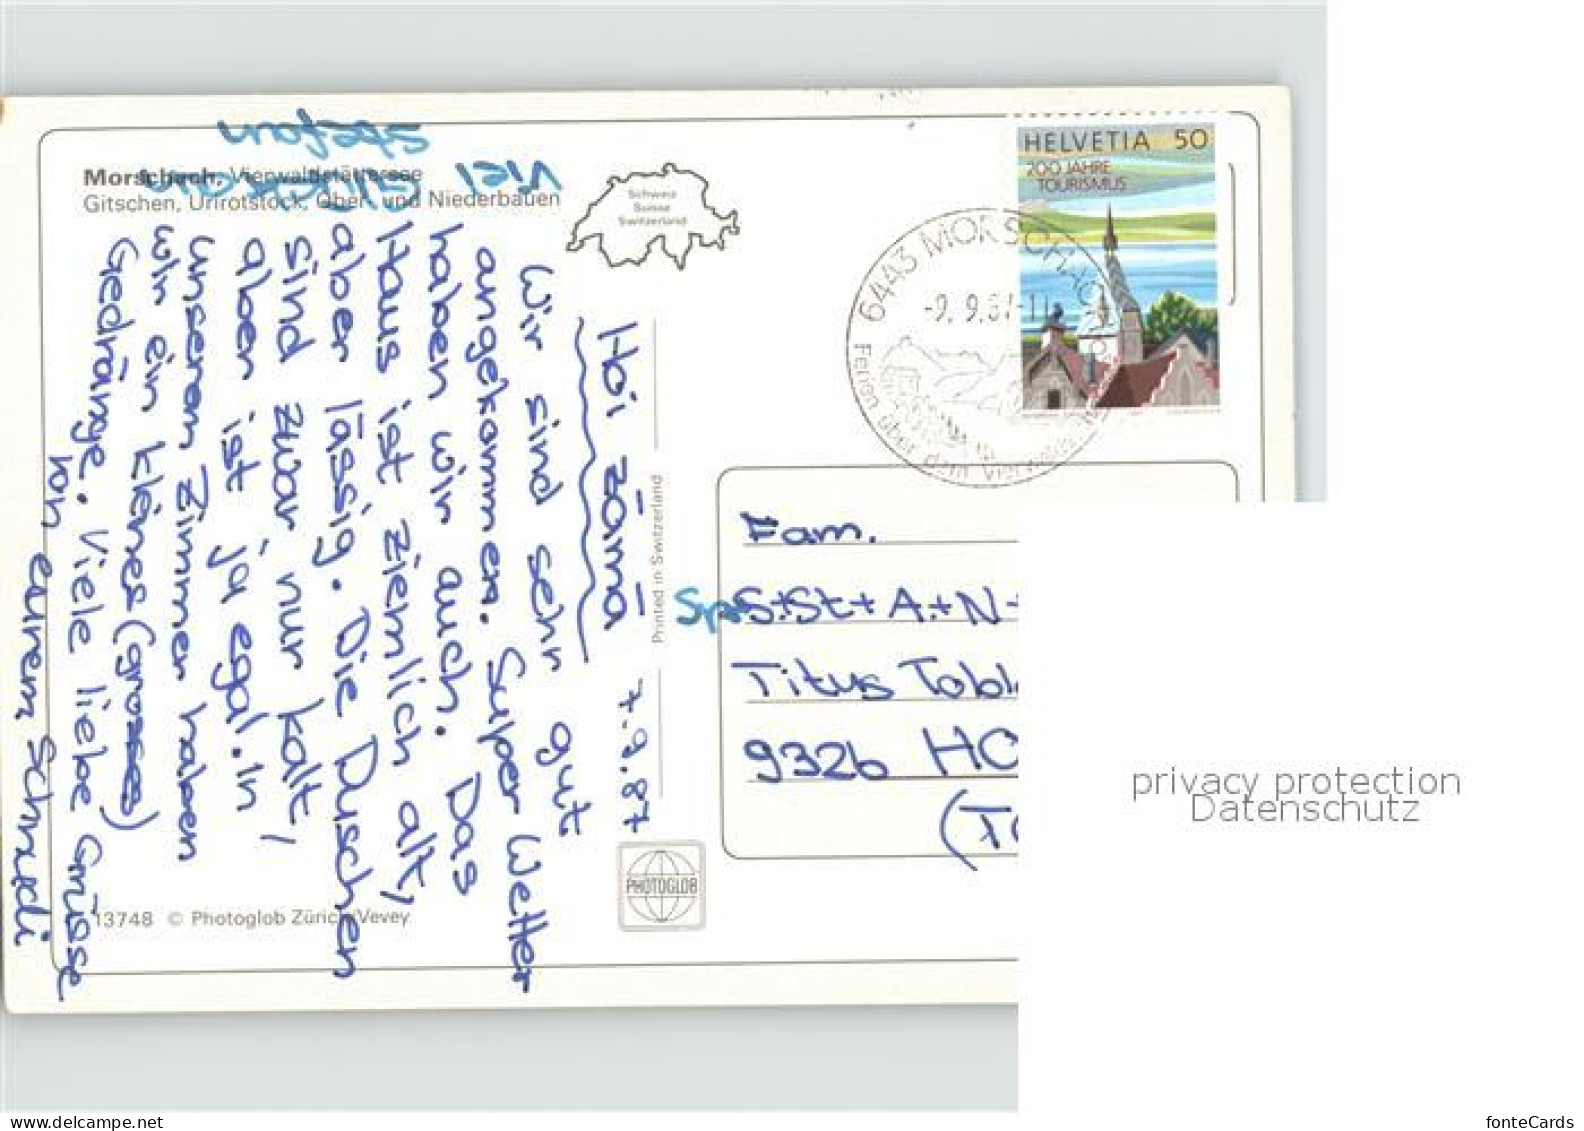 Morschach, Vierwaldstättersee
Gitschen, Urirotstock, Ober- und Niederbauen
Stefan
Viel
Schweiz
Suisse
Switzerland
HELVETIA 50
200 JAHRE
TOURISMUS
6443 MORSCHACH
-9. 9.87-11
Ferien über dem Vierwaldst
Hoi zämä 7.9.87
Wir sind sehr gut
angekommen. Super Wetter
haben wir auch. Das
Haus ist ziemlich alt,
aber lässig. Die Duschen
sind zwar nur kalt,
aber ist ja egal. In
unseren Zimmer haben
wir ein kleines (grosses)
Gedränge. Viele liebe Grüsse
von eurem Schnudi
Printed in Switzerland
PHOTOGLOB
13748 © Photoglob Zürich/Vevey
Fam.
S+St+A.+N+
Titus Tobl
9326 HO
(TG
privacy protection
Datenschutz
fonteCards